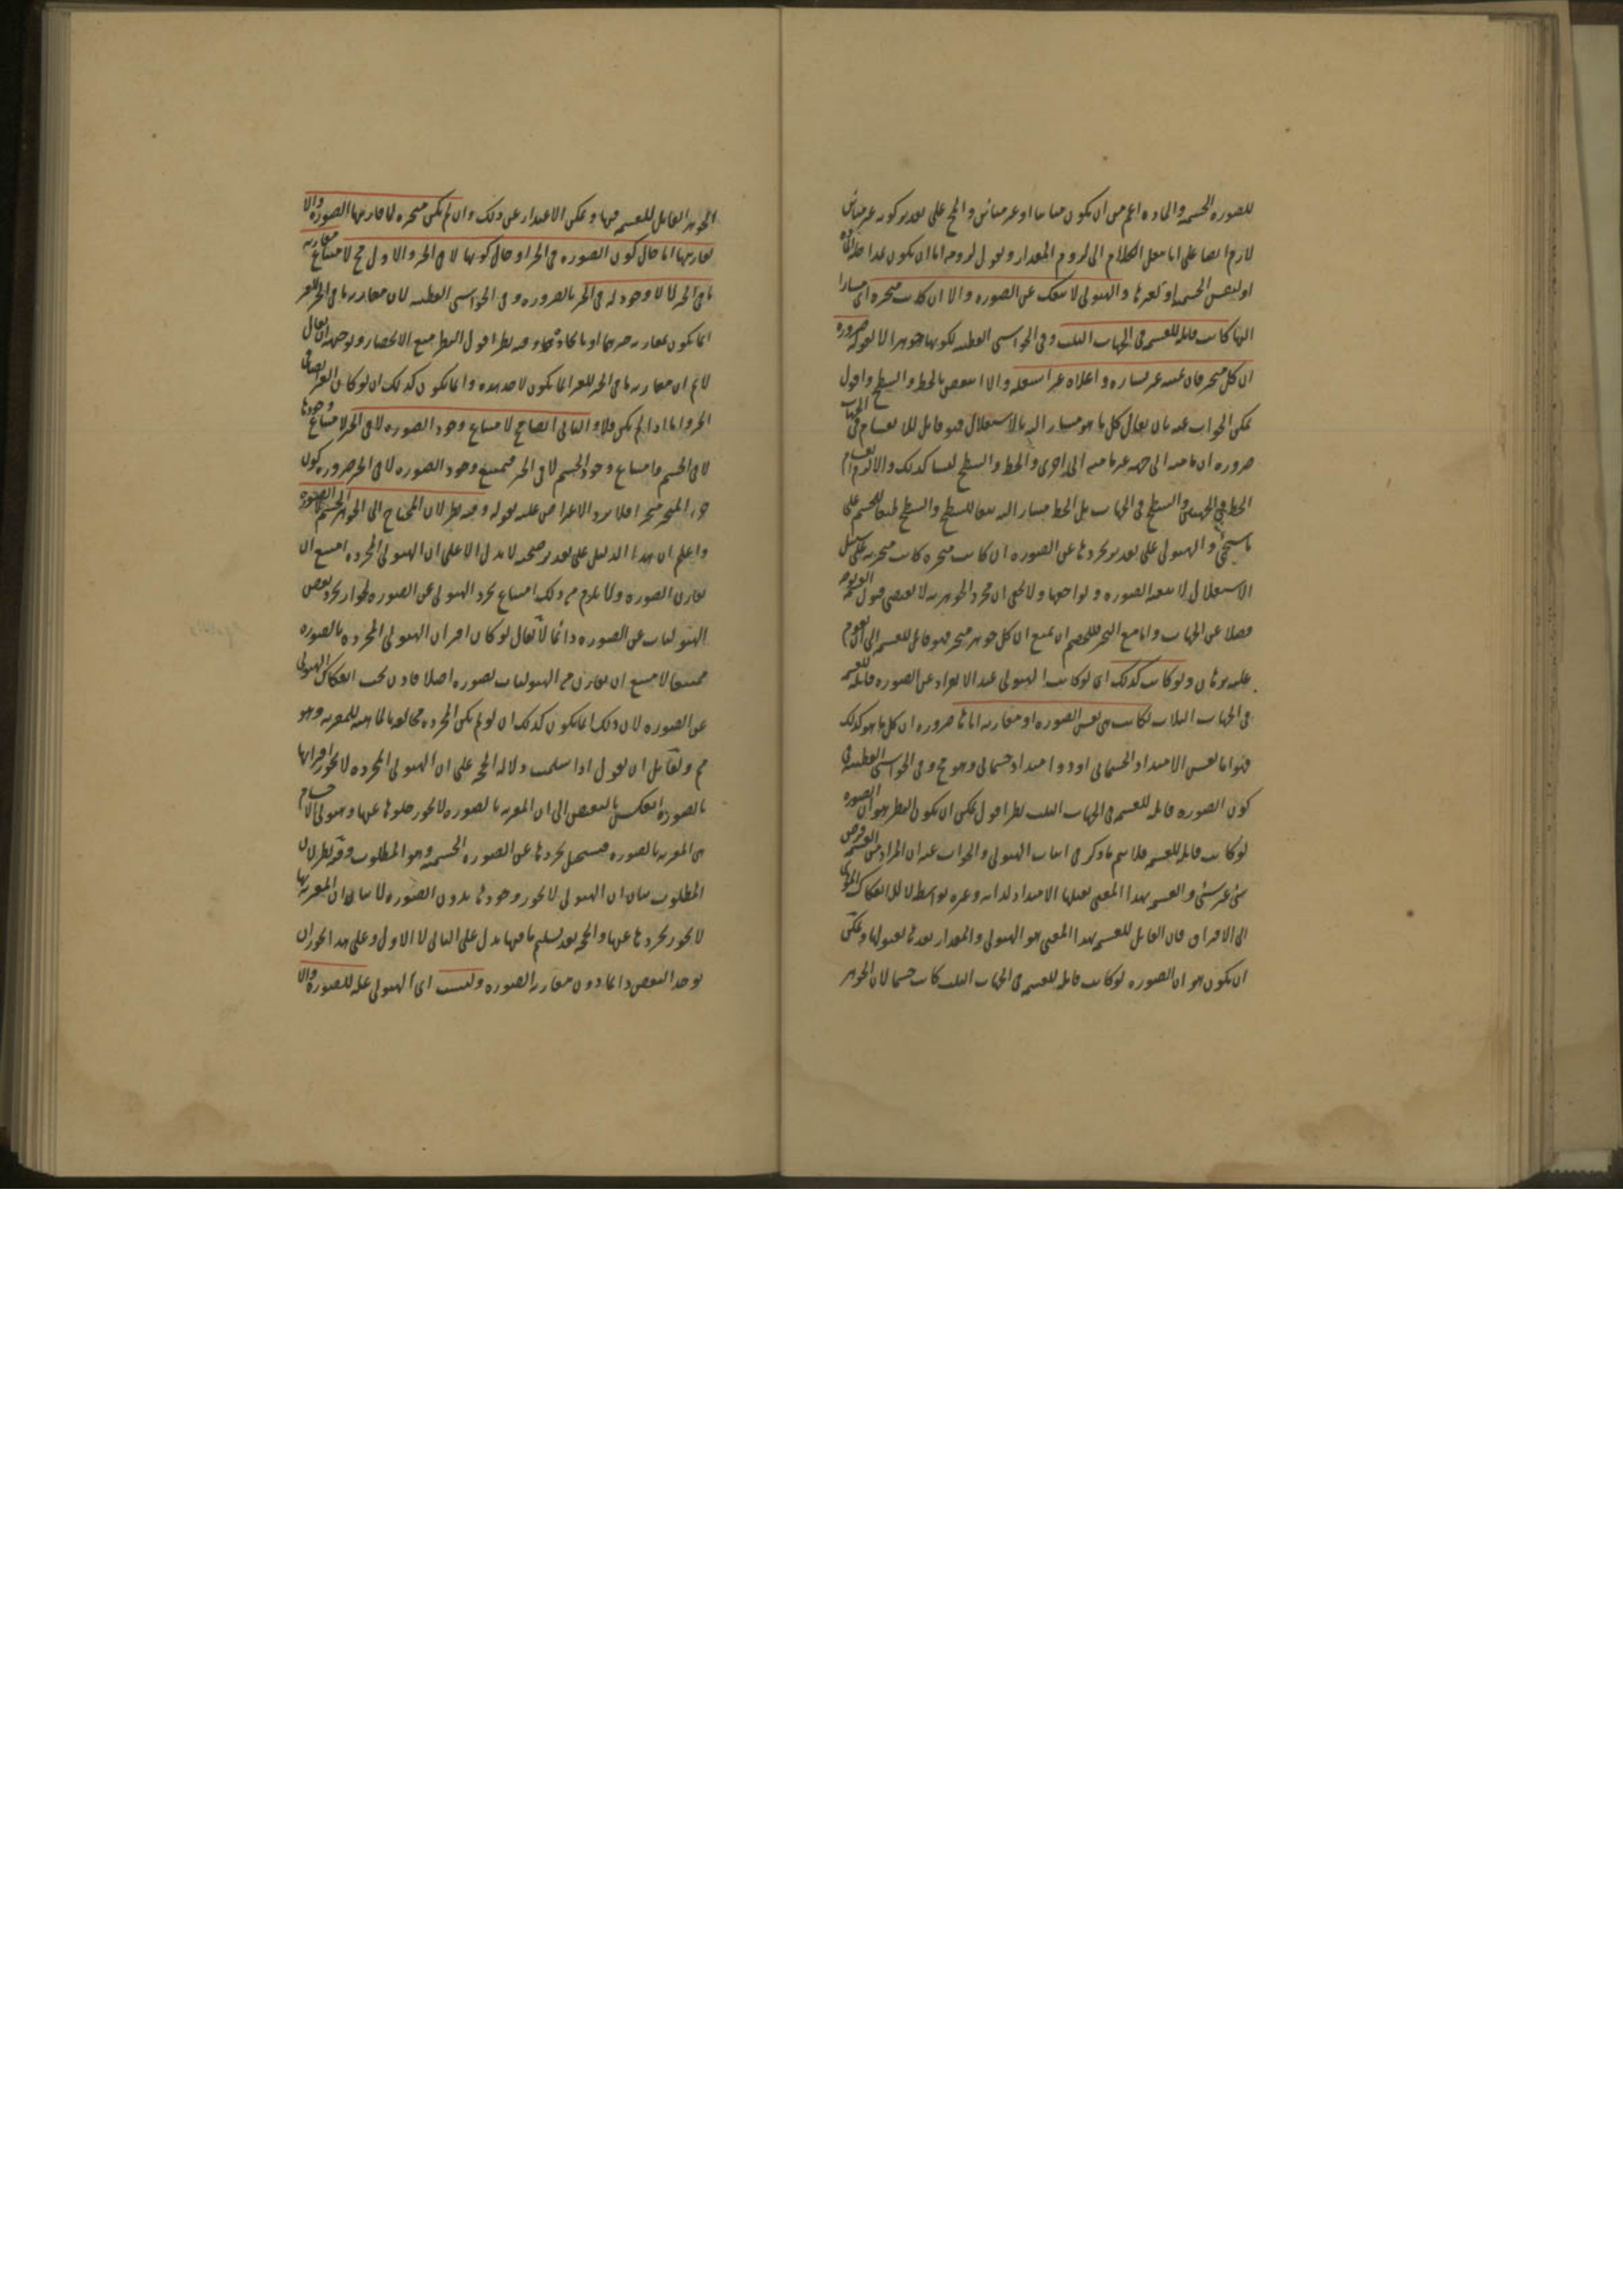 للصوره الجسميه والماده اعم من ان يكون مباينا او غير مباين والمحج على تقدير كونه غير مباين
لازم ايضا على انا نقل الكلام الى لزوم المقدار ونقول لزومه اما ان يكون لذا المادة
او لنفس الجسميه او لغيرها والهيولى لا تنفك عن الصوره والا ان كانت متحيزه اى مشارا
اليها كانت قابله للقسمه فى الجهات الثلث وفى الحواشى القطبيه لكونها جوهرا لا لقوله ضروره
ان كل متحيز فان يمينه غير يساره واعلاه غير اسفله والا انتقض بالخط والسطح واقول
يمكن الجواب عنه بان يقال كل ما هو مشار اليه بالاستقلال فهو قابل للانقسام فى الجهات
ضروره ان ما منه الى جهه غير ما منه الى اخرى والخط والسطح ليسا كذلك والا لزم انقسام
الخط فى الجهتين والسطح فى الجهات بل الخط مشار اليه تبعا للسطح والسطح تبعا للجسم على
ما سيجئ والهيولى على تقدير تجردها عن الصوره ان كانت متحيزه كانت متحيزه على سبيل
الاستقلال لا تبعه الصوره ولواحقها ولا يخفى ان مجرد الجوهريه لا يقتضى قبول القسمه
فضلا عن الجهات واما مع التحيز فللخصم ان يمنع ان كل جوهر متحيز فهو قابل للقسمه الى ان يقوم
عليه برهان ولو كانت كذلك اى لو كانت الهيولى عند الانفراد عن الصوره قابله للقسمه
فى الجهات الثلاث لكانت هى نفس الصوره او مقارنه اياها ضروره ان كل ما هو كذلك
فهو اما نفس الامتداد الجسمانى او ذو امتداد جسمانى وهو مح وفى الحواشى القطبيه فى
كون الصوره قابله للقسمه فى الجهات الثلث نظر اقول يمكن ان يكون النظر هو ان الصوره
لو كانت قابله للقسمه فلا يتم ما ذكر فى اثبات الهيولى والجواب عنه ان المراد من القسمه فرض
شئ غير شئ والقسمه بهذا المعنى يقبلها الامتداد لذاته وغيره بواسطه لا للانفكاك المؤدى
الى الافتراق فان القابل للقسمه بهذا المعنى هو الهيولى والمقدار يعدها لقبولها ويمكن
ان يكون هو ان الصوره لو كانت قابله للقسمه فى الجهات الثلث كانت جسما لان الجوهر
الجوهر القابل للقسمه فيها ويمكن الاعتذار عن ذلك وان لم تكن متحيزه لما قارنها الصوره والا
لقارنتها اما حال كون الصوره فى الحيز او حال كونها لا فى الحيز والاول مح لامتناع مقارنه
ما فى الحيز لما لا وجود له فى الحيز بالضروره وفى الحواشى القطبيه لان مقارنه ما فى الحيز للغير
انما يكون لمقارنه حيزيهما او باتحاد حيزهما وفيه نظر اقول النظر منع الانحصار وتوجيهه ان يقال
لا نم ان مقارنه ما فى الحيز للغير انما يكون لاحد هذه وانما يكون كذلك ان لو كان الغير ايضا فى
الحيز واما اذا لم يكن فلا والثانى ايضا مح لامتناع وجود الصوره لا فى الحيز لامتناع وجودها
لا فى الجسم وامتناع وجود الجسم لا فى الحيز فيمتنع وجود الصوره لا فى الحيز ضروره كون
جزء المتحيز متحيزا فلا يرد الاعتراض عليه بقوله وفيه نظر لان المحتاج الى الحيز هو الجسم لا الصوره
واعلم ان هذا الدليل على تقدير صحته لا يدل الا على ان الهيولى المجرده امتنع ان
تقارن الصوره ولا يلزم من ذلك امتناع تجرد الهيولى عن الصوره لجواز تجرد بعض
الهيوليات عن الصوره دائما لا يقال لو كان اقتران الهيولى المجرده بالصوره
ممتنعا لامتنع ان يقارن من الهيوليات لصوره اصلا فاذن يجب انفكاك الهيولى
عن الصوره لان ذلك انما يكون كذلك ان لو لم تكن المجرده مخالفه بالماهيه للمقترنه وهو
مم ولقائل ان يقول اذا سلمت دلاله الحجه على ان الهيولى المجرده لا يجوز اقترانها
بالصوره انعكس بالنقيض الى ان المقترنه بالصوره لا يجوز خلوها عنها وهيولى الاجسام
هى المقترنه بالصوره فيستحيل تجردها عن الصوره الجسميه وهو المطلوب وفيه نظر لان
المطلوب بيان ان الهيولى لا يجوز وجودها بدون الصوره لا بيان ان المقترنه بها
لا يجوز تجردها عنها والحجه بعد تسليم ما فيها يدل على الثانى لا الاول وعلى هذا يجوز ان
يوجد البعض دائما دون مقارنه الصوره وليست اى الهيولى عله للصوره والا